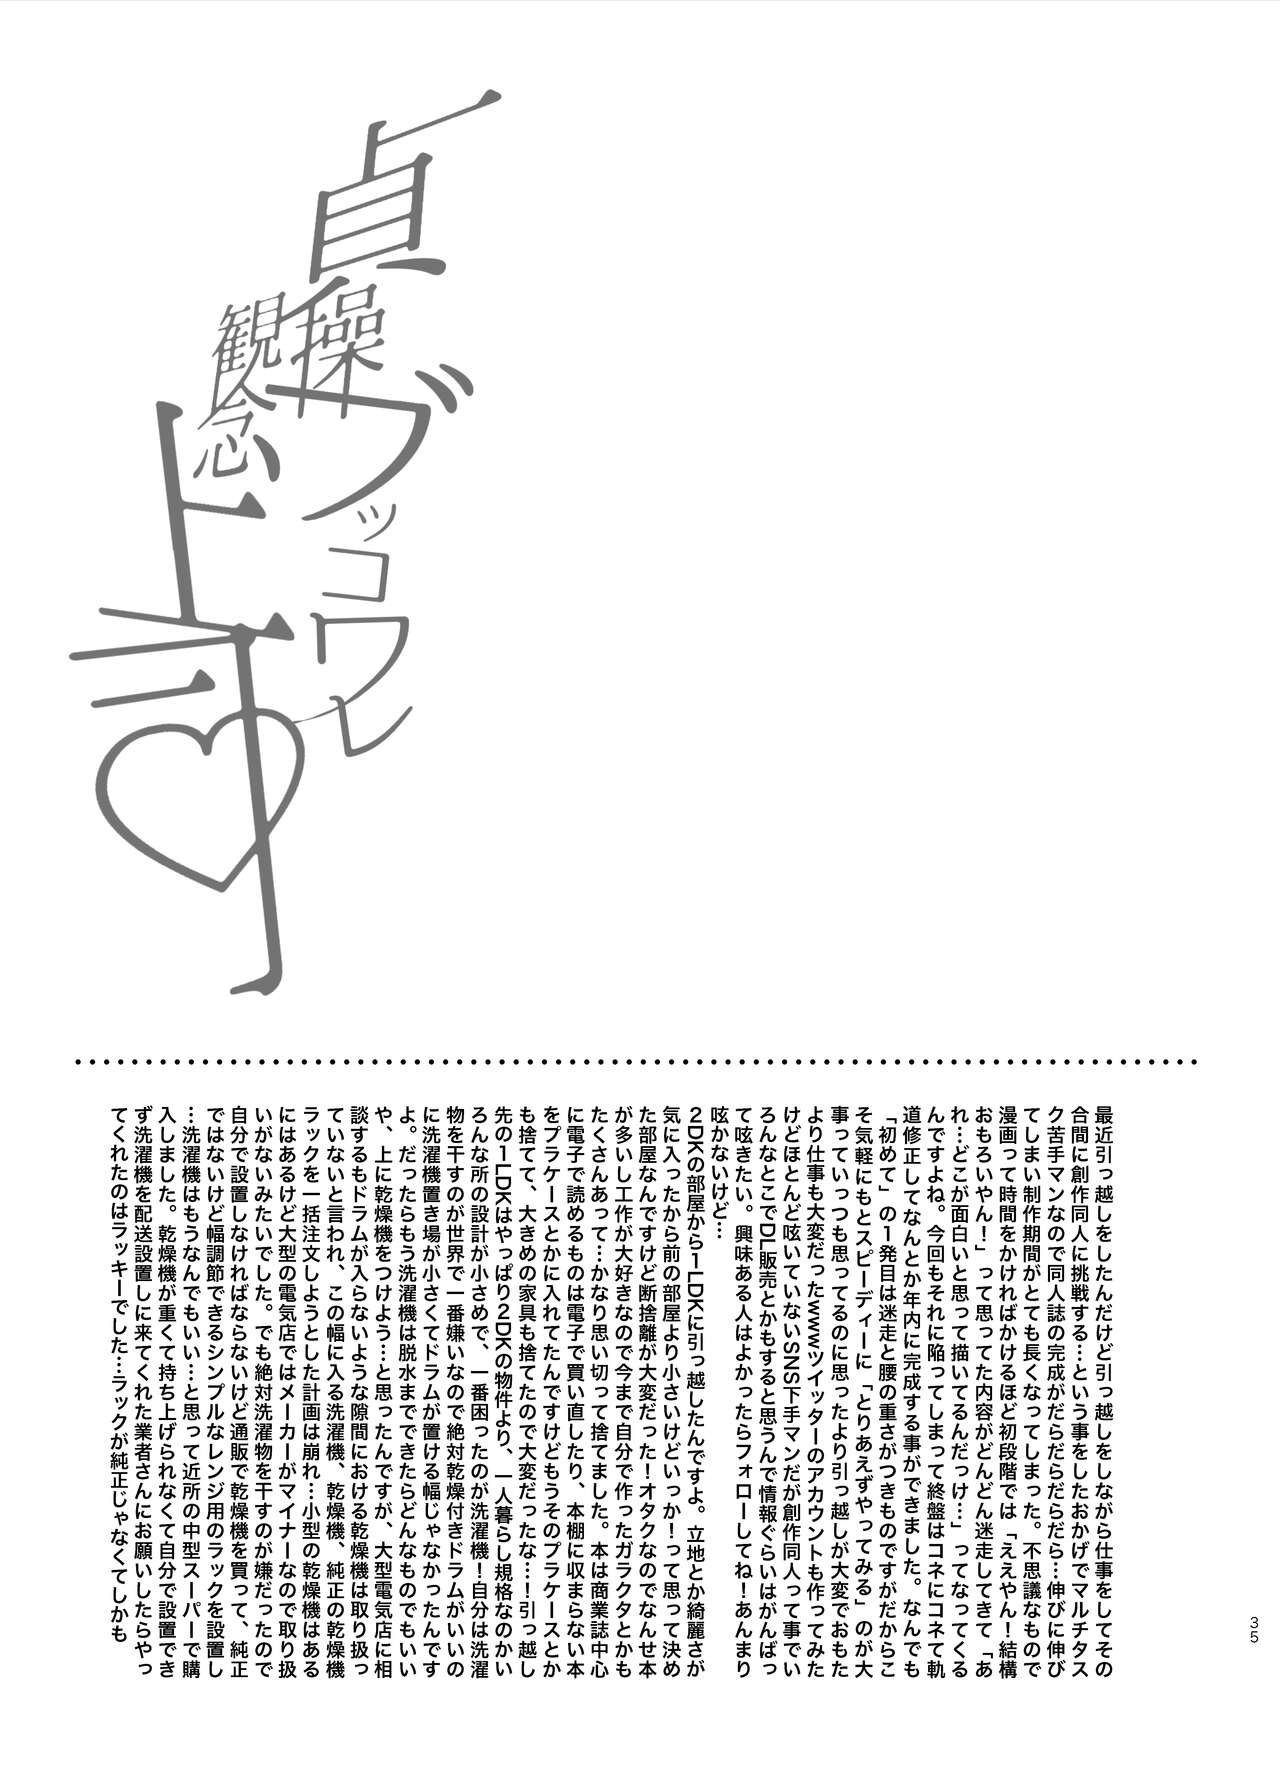 貞操
観念
ブッコワレ
上司♡
最近引っ越しをしたんだけど引っ越しをしながら仕事をしてその
合間に創作同人に挑戦する…という事をしたおかげでマルチタス
ク苦手マンなので同人誌の完成がだらだらだらだら…伸びに伸び
てしまい制作期間がとても長くなってしまった。不思議なもので
漫画って時間をかければかけるほど初段階では「ええやん！結構
おもろいやん！」って思ってた内容がどんどん迷走してきて「あ
れ…どこが面白いと思って描いてるんだっけ…」ってなってくる
んですよね。今回もそれに陥ってしまって終盤はコネにコネて軌
道修正してなんとか年内に完成する事ができました。なんでも
「初めて」の1発目は迷走と腰の重さがつきものですがだからこ
そ気軽にもとスピーディーに「とりあえずやってみる」のが大
事っていっつも思ってるのに思ったより引っ越しが大変でおもた
より仕事も大変だったwwwツイッターのアカウントも作ってみた
けどほとんど呟いていないSNS下手マンだが創作同人って事でい
ろんなとこでDL販売とかもすると思うんで情報ぐらいはがんばっ
て呟きたい。興味ある人はよかったらフォローしてね！あんまり
呟かないけど…
2DKの部屋から1LDKに引っ越したんですよ。立地とか綺麗さが
気に入ったから前の部屋より小さいけどいっか！って思って決め
た部屋なんですけど断捨離が大変だった！オタクなのでなんせ本
が多いし工作が大好きなので今まで自分で作ったガラクタとかも
たくさんあって…かなり思い切って捨てました。本は商業誌中心
に電子で読めるものは電子で買い直したり、本棚に収まらない本
をプラケースとかに入れてたんですけどもうそのプラケースとか
も捨てて、大きめの家具も捨てたので大変だったな…！引っ越し
先の1LDKはやっぱり2DKの物件より、一人暮らし規格なのかい
ろんな所の設計が小さめで、一番困ったのが洗濯機！自分は洗濯
物を干すのが世界で一番嫌いなので絶対乾燥付きドラムがいいの
に洗濯機置き場が小さくてドラムが置ける幅じゃなかったんです
よ。だったらもう洗濯機は脱水までできたらどんなものでもいい
や、上に乾燥機をつけよう…と思ったんですが、大型電気店に相
談するもドラムが入らないような隙間における乾燥機は取り扱っ
ていないと言われ、この幅に入る洗濯機、乾燥機、純正の乾燥機
ラックを一括注文しようとした計画は崩れ…小型の乾燥機はある
にはあるけど大型の電気店ではメーカーがマイナーなので取り扱
いがないみたいでした。でも絶対洗濯物を干すのが嫌だったので
自分で設置しなければならないけど通販で乾燥機を買って、純正
ではないけど幅調節できるシンプルなレンジ用のラックを設置し
…洗濯機はもうなんでもいい…と思って近所の中型スーパーで購
入しました。乾燥機が重くて持ち上げられなくて自分で設置でき
ず洗濯機を配送設置しに来てくれた業者さんにお願いしたらやっ
てくれたのはラッキーでした…ラックが純正じゃなくてしかも
35